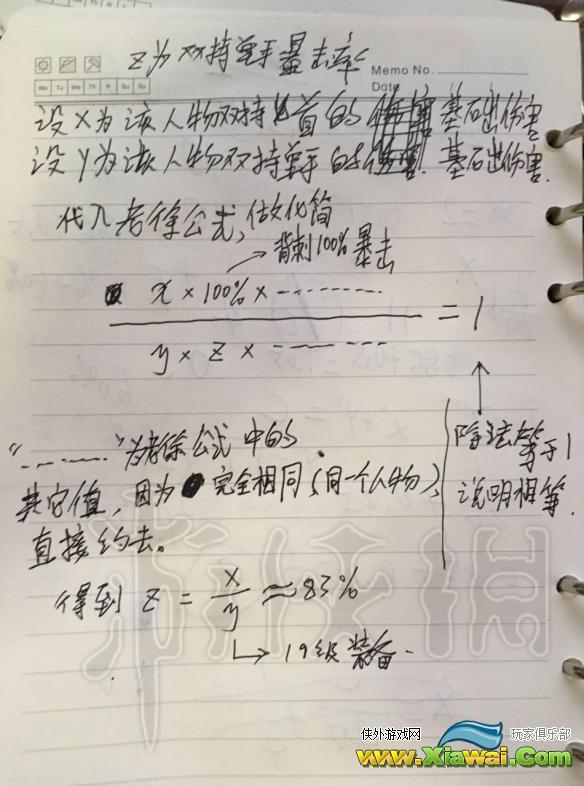 z为双持单手暴击率
Memo No.
Date
Mo Tu We Th Fr Sa Su
设X为该人物双持匕首的基础伤害
设y为该人物双持单手的基础伤害.
代入老徐公式,做化简
背刺100%暴击
x × 100% × -------- 
y × z × --------
= 1
除法等于1
说明相等.
“--------”为老徐公式中的
其它值,因为完全相同(同一个人物),
直接约去。
得到 z = x/y ≈ 83%
↳ 19级装备.
侠外游戏网
玩家俱乐部
www.Xiawai.Com